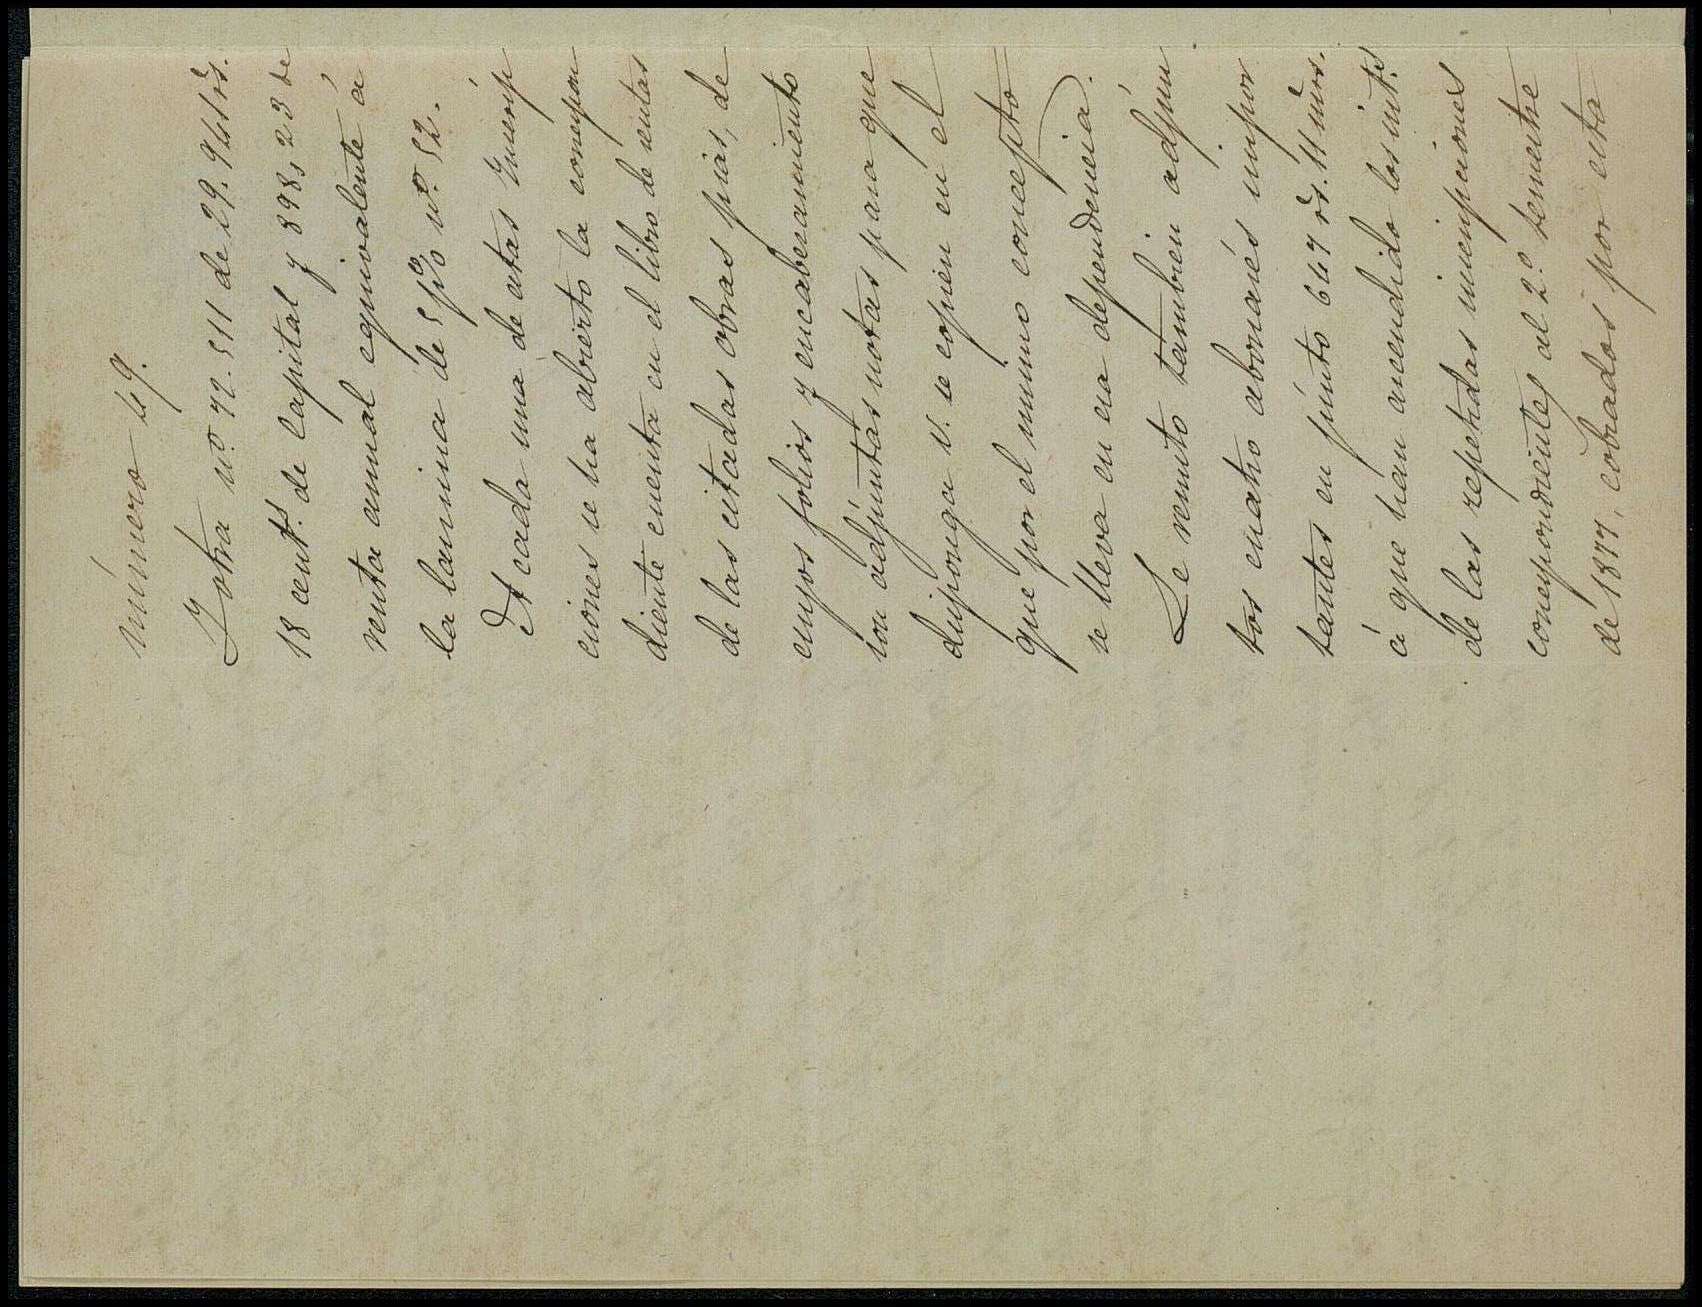 número 49.
Y otra nº. 72.511 de 29.944 rs.
18 cents. de Capital y 898,23 de
renta anual equivalente á
la lamina de 5 p% nº. 52.
A cada una de estas Inscrip
ciones se ha abierto la correspon
diente cuenta en el libro de rentas
de las citadas obras pias, de
cuyos folios y encabezamiento
son adjuntas notas para que
disponga V. se copien en el
que por el mismo concepto
se lleva en esa dependencia.
Le remito tambien adjun
tos cuatro abonarés impor
tantes en junto 647 rs. 11 mrs.
á que han ascendido los ints.
de las repetidas inscripciones
correspondientes al 2º. semestre
de 1877, cobrados por esta